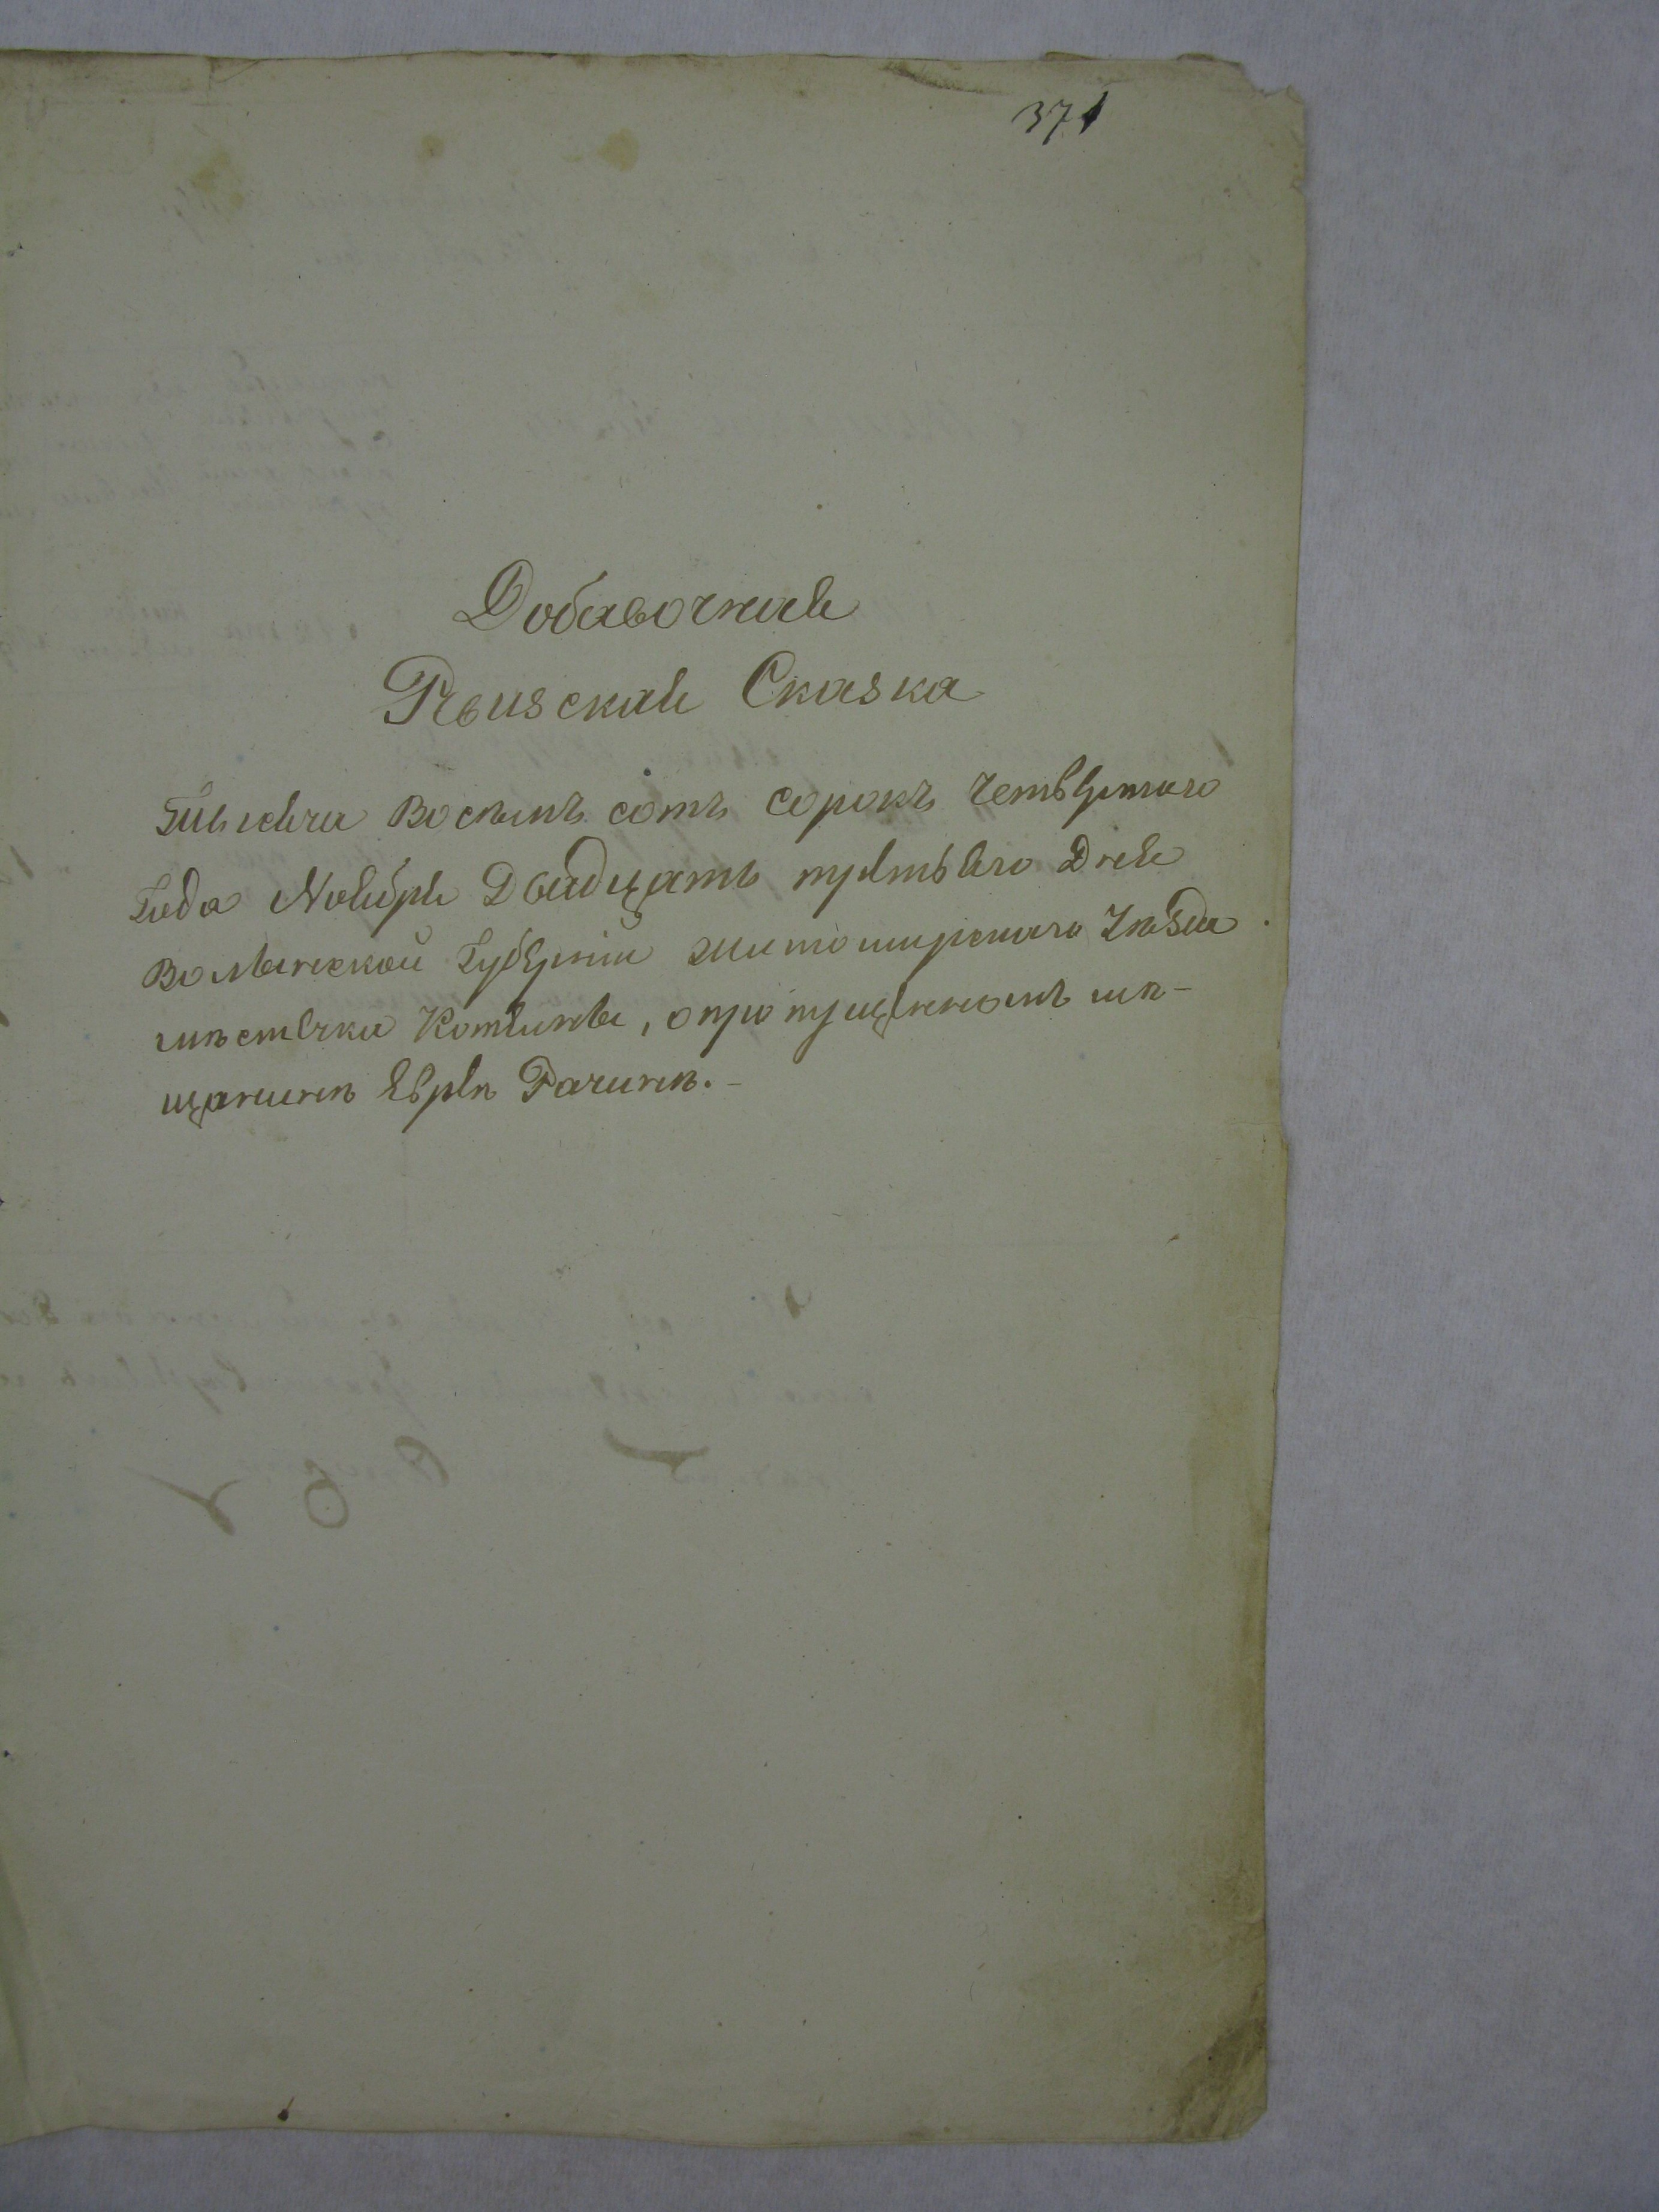 371
Добавочная
Ревизская Сказка
Тысяча восемь сотъ сорокъ четвертаго
года Ноября Двадцать третьяго Дня
Волынской Губерніи Житомирскаго Уѣзда
мѣстечка Котельни, о пропущенномъ мѣ-
щанинѣ Евреѣ Рачинѣ.-